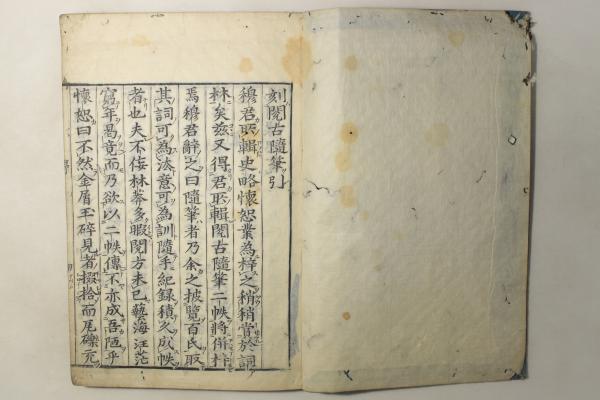 刻閱古隨筆引
穆君所輯史略懷恕業為梓之稍稍當於詞
林矣茲又得君所輯閱古隨筆二帙將併梓
焉穆君辭之曰隨筆者乃余之披覽百氏取
其詞可為法意可為訓隨手紀錄積久成帙
者也夫不佞林莽多暇閱方未已藝海汪茫
窮年曷竟而乃欲以二帙傳不亦成吾陋乎
懷恕曰不然金屑玉碎見者掇拾而尾礫充